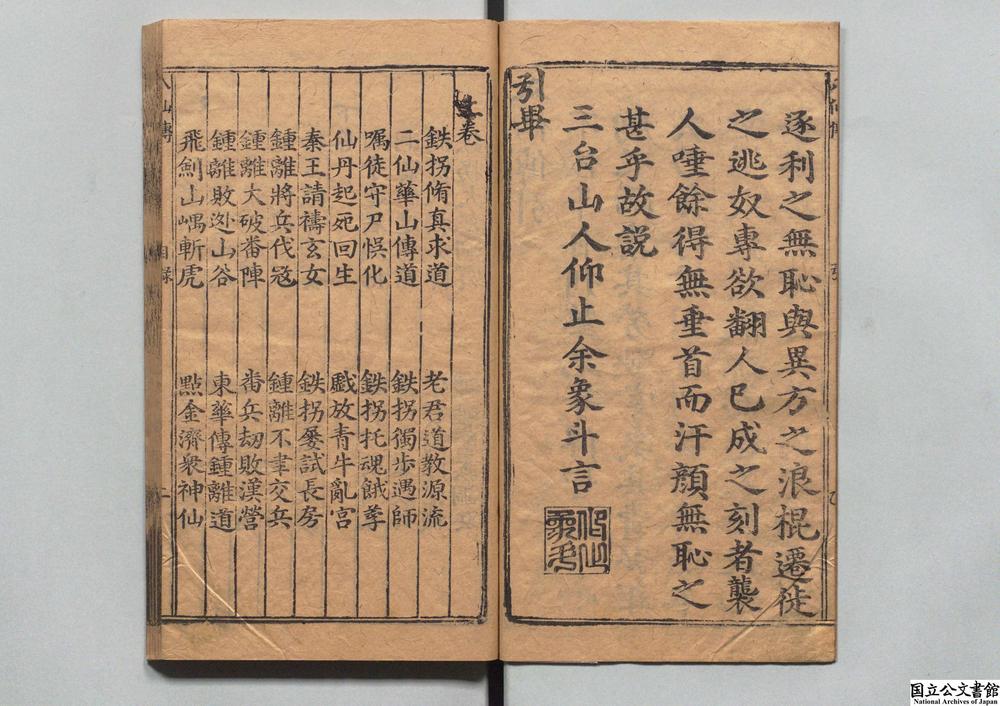 逐利之無恥與異方之浪棍遷徒
之逃奴專欲翻人已成之刻者襲
人唾餘得無垂首而汗顔無恥之
甚乎故説
三台山人仰止余象斗言
引畢
上卷
鉄拐脩真求道 老君道教源流
二仙華山傳道 鉄拐獨步遇師
嘱徒守尸悞化 鉄拐托魂餓莩
仙丹起死回生 戲放青牛亂宮
秦王請禱玄女 鉄拐屡試長房
鍾離將兵代寇 鍾離不聿交兵
鍾離大破畨陣 畨兵刼敗漢營
鍾離敗迯山谷 東華傳鍾離道
飛劍山嵎斬虎 點金濟衆神仙
八仙傳 目录 二
国立公文書館
National Archives of Japan